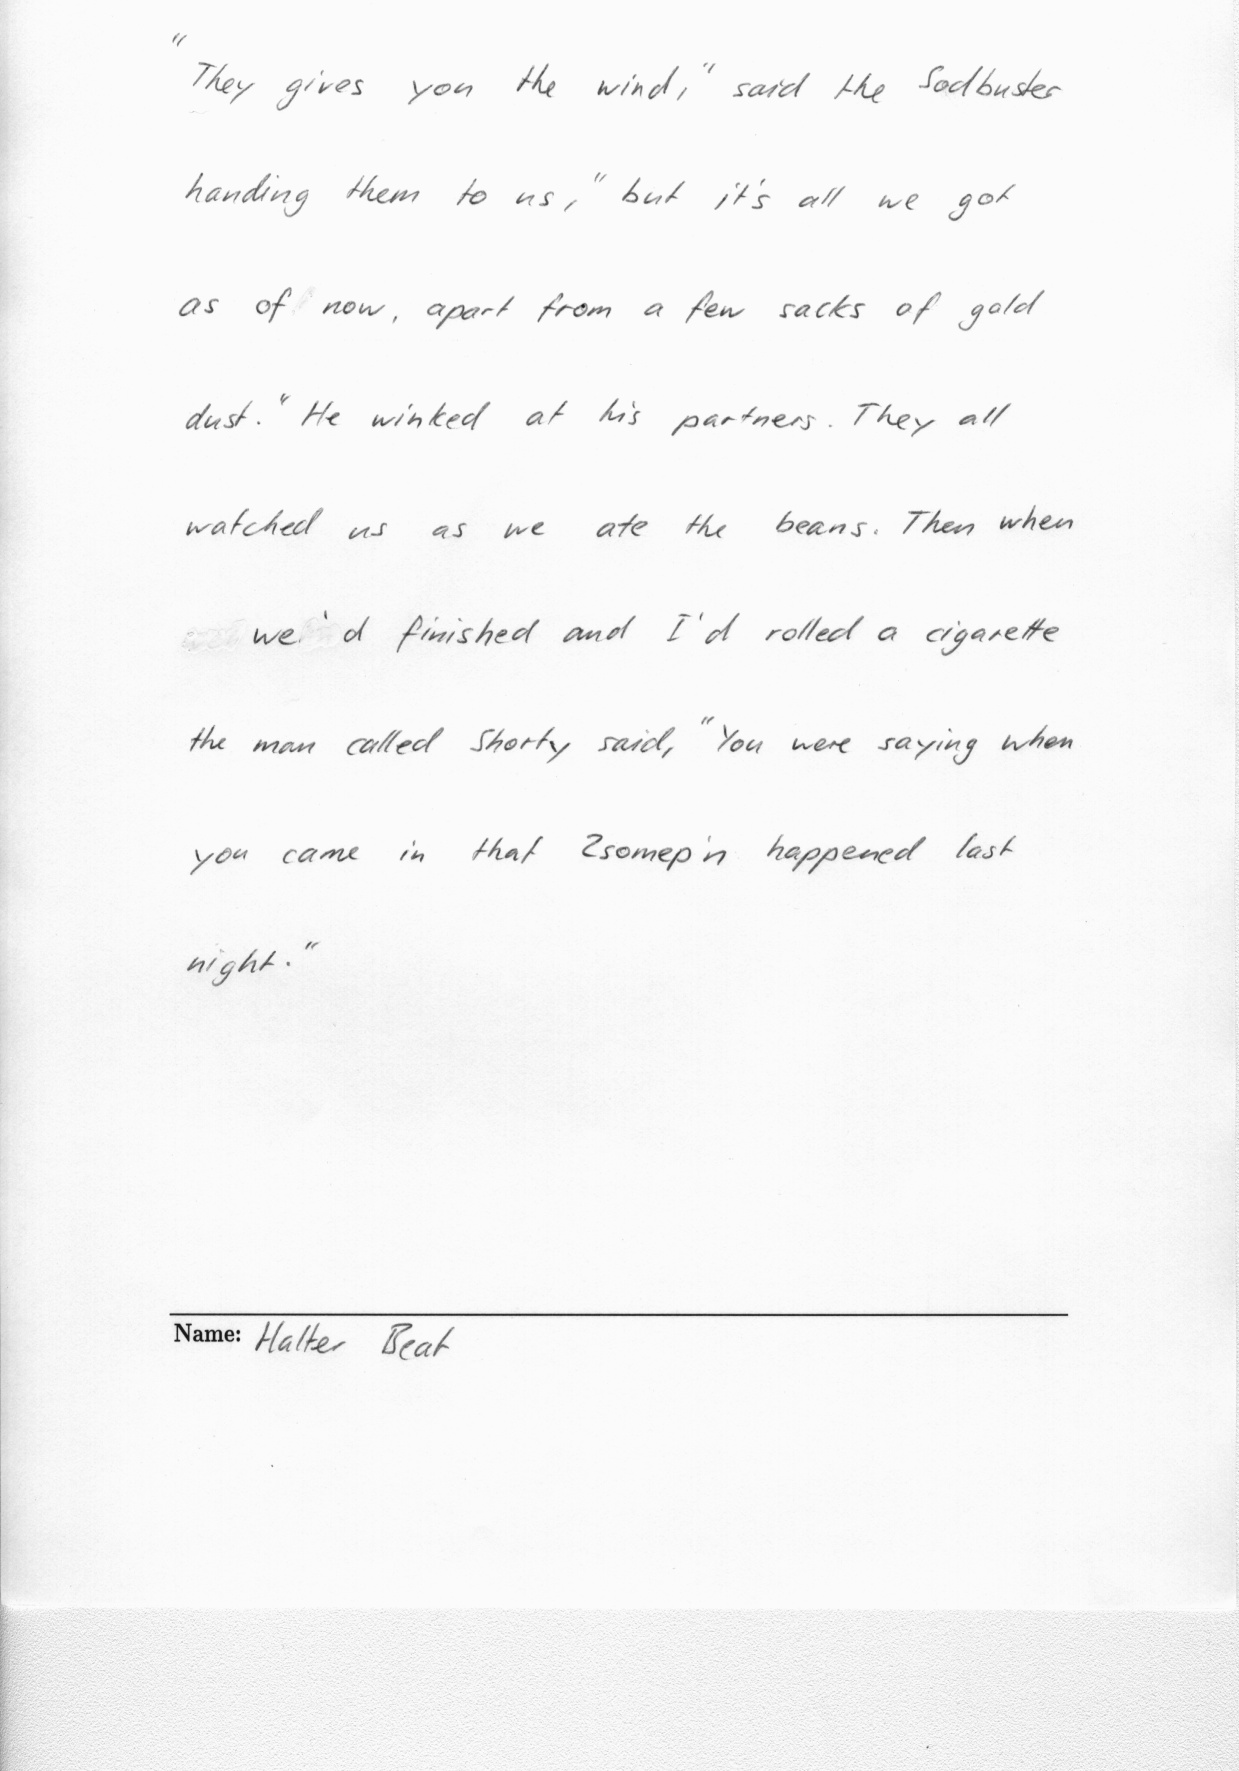 "They gives you the wind," said the Sodbuster
handing them to us, "but it's all we got
as of now, apart from a few sacks of gold
dust." He winked at his partners. They all
watched us as we ate the beans. Then when
we'd finished and I'd rolled a cigarette
the man called Shorty said, "You were saying when
you came in that 2somep'n happened last
night."
Name: Halter Beat